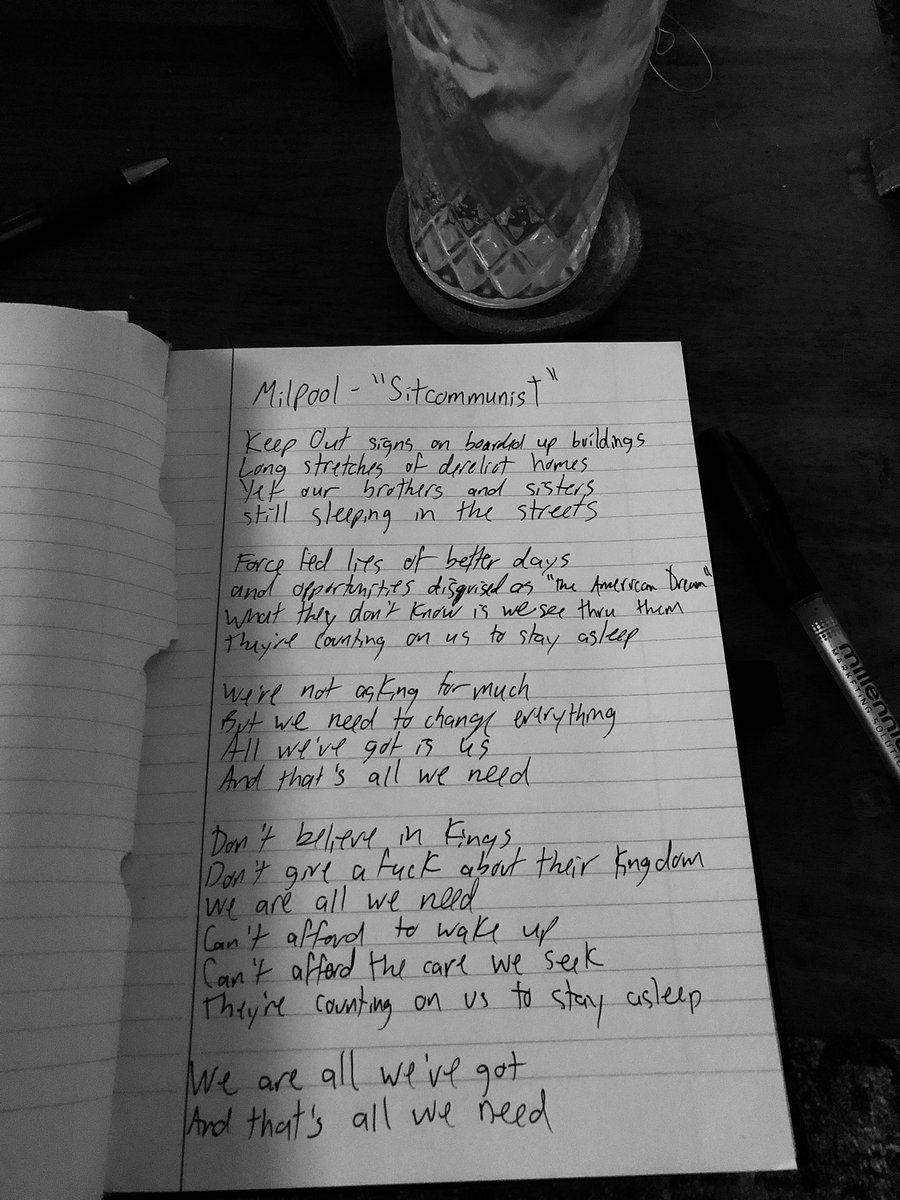 Milpool - "Sitcommunist"
Keep Out signs on boarded up buildings
Long stretches of derelict homes
Yet our brothers and sisters
still sleeping in the streets
Force Fed lies of better days
and opportunities disguised as "The American Dream"
What they don't know is we see thru them
They're counting on us to stay asleep
We're not asking for much
But we need to change everything
All we've got is us
And that's all we need
Don't believe in Kings
Don't give a fuck about their kingdom
We are all we need
Can't afford to wake up
Can't afford the care we seek
They're counting on us to stay asleep
We are all we've got
And that's all we need
millenni
MARKETING SOLUTION